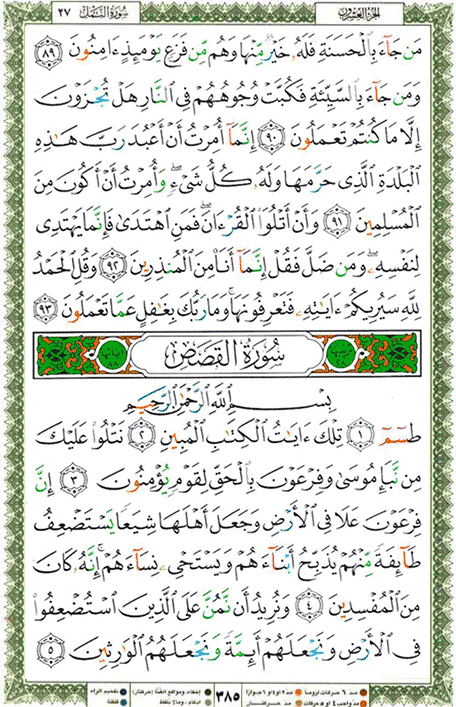 الجزء العشرون سورة النمل ٢٧
مَن جَآءَ بِالْحَسَنَةِ فَلَهُۥ خَيْرٌ مِّنْهَا وَهُم مِّن فَزَعٍ يَوْمَئِذٍ ءَامِنُونَ ٨٩
وَمَن جَآءَ بِالسَّيِّئَةِ فَكُبَّتْ وُجُوهُهُمْ فِى النَّارِ هَلْ تُجْزَوْنَ
إِلَّا مَا كُنتُمْ تَعْمَلُونَ ٩٠ إِنَّمَآ أُمِرْتُ أَنْ أَعْبُدَ رَبَّ هَٰذِهِ
الْبَلْدَةِ الَّذِى حَرَّمَهَا وَلَهُۥ كُلُّ شَىْءٍ ۖ وَأُمِرْتُ أَنْ أَكُونَ مِنَ
الْمُسْلِمِينَ ٩١ وَأَنْ أَتْلُوَا الْقُرْءَانَ ۖ فَمَنِ اهْتَدَىٰ فَإِنَّمَا يَهْتَدِى
لِنَفْسِهِۦ ۖ وَمَن ضَلَّ فَقُلْ إِنَّمَآ أَنَا مِنَ الْمُنذِرِينَ ٩٢ وَقُلِ الْحَمْدُ
لِلَّهِ سَيُرِيكُمْ ءَايَٰتِهِۦ فَتَعْرِفُونَهَا ۚ وَمَا رَبُّكَ بِغَٰفِلٍ عَمَّا تَعْمَلُونَ ٩٣
سُورَةُ الْقَصَصِ
بِسْمِ اللَّهِ الرَّحْمَٰنِ الرَّحِيمِ
طسٓمٓ ١ تِلْكَ ءَايَٰتُ الْكِتَٰبِ الْمُبِينِ ٢ نَتْلُوا عَلَيْكَ
مِن نَّبَإِ مُوسَىٰ وَفِرْعَوْنَ بِالْحَقِّ لِقَوْمٍ يُؤْمِنُونَ ٣ إِنَّ
فِرْعَوْنَ عَلَا فِى الْأَرْضِ وَجَعَلَ أَهْلَهَا شِيَعًا يَسْتَضْعِفُ
طَآئِفَةً مِّنْهُمْ يُذَبِّحُ أَبْنَآءَهُمْ وَيَسْتَحْىِۦ نِسَآءَهُمْ ۚ إِنَّهُۥ كَانَ
مِنَ الْمُفْسِدِينَ ٤ وَنُرِيدُ أَن نَّمُنَّ عَلَى الَّذِينَ اسْتُضْعِفُوا
فِى الْأَرْضِ وَنَجْعَلَهُمْ أَئِمَّةً وَنَجْعَلَهُمُ الْوَٰرِثِينَ ٥
٣٨٥